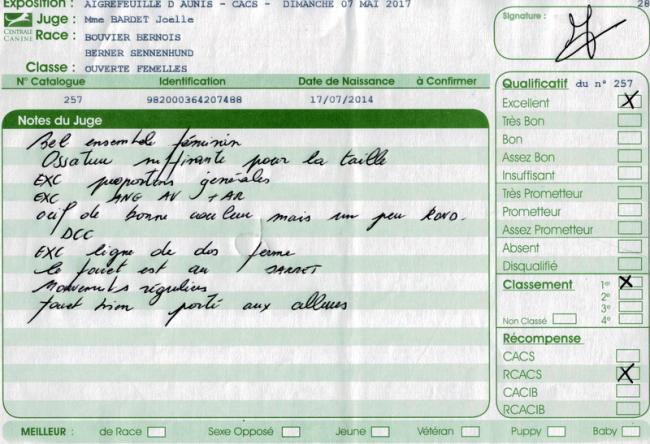 Exposition : AIGREFEUILLE D AUNIS - CACS - DIMANCHE 07 MAI 2017
28
Juge : Mme BARDET Joelle
Signature :
CENTRALE CANINE
Race : BOUVIER BERNOIS
BERNER SENNENHUND
Classe : OUVERTE FEMELLES
N° Catalogue Identification Date de Naissance à Confirmer
257 982000364207488 17/07/2014
Notes du Juge
Bel ensemble féminin
Ossature suffisante pour la taille
EXC proportions générales
EXC ANG AV + AR
oeif de bonne couleur mais un peu ROND.
DCC
EXC ligne de dos ferme
le fouet est au JARRET
Mouvements réguliers
fouet bien porté aux allures
Qualificatif du n° 257
Excellent X
Très Bon
Bon
Assez Bon
Insuffisant
Très Prometteur
Prometteur
Assez Prometteur
Absent
Disqualifié
Classement 1er X
2e
3e
Non Classé 4e
Récompense
CACS
RCACS X
CACIB
RCACIB
MEILLEUR : de Race Sexe Opposé Jeune Vétéran Puppy Baby